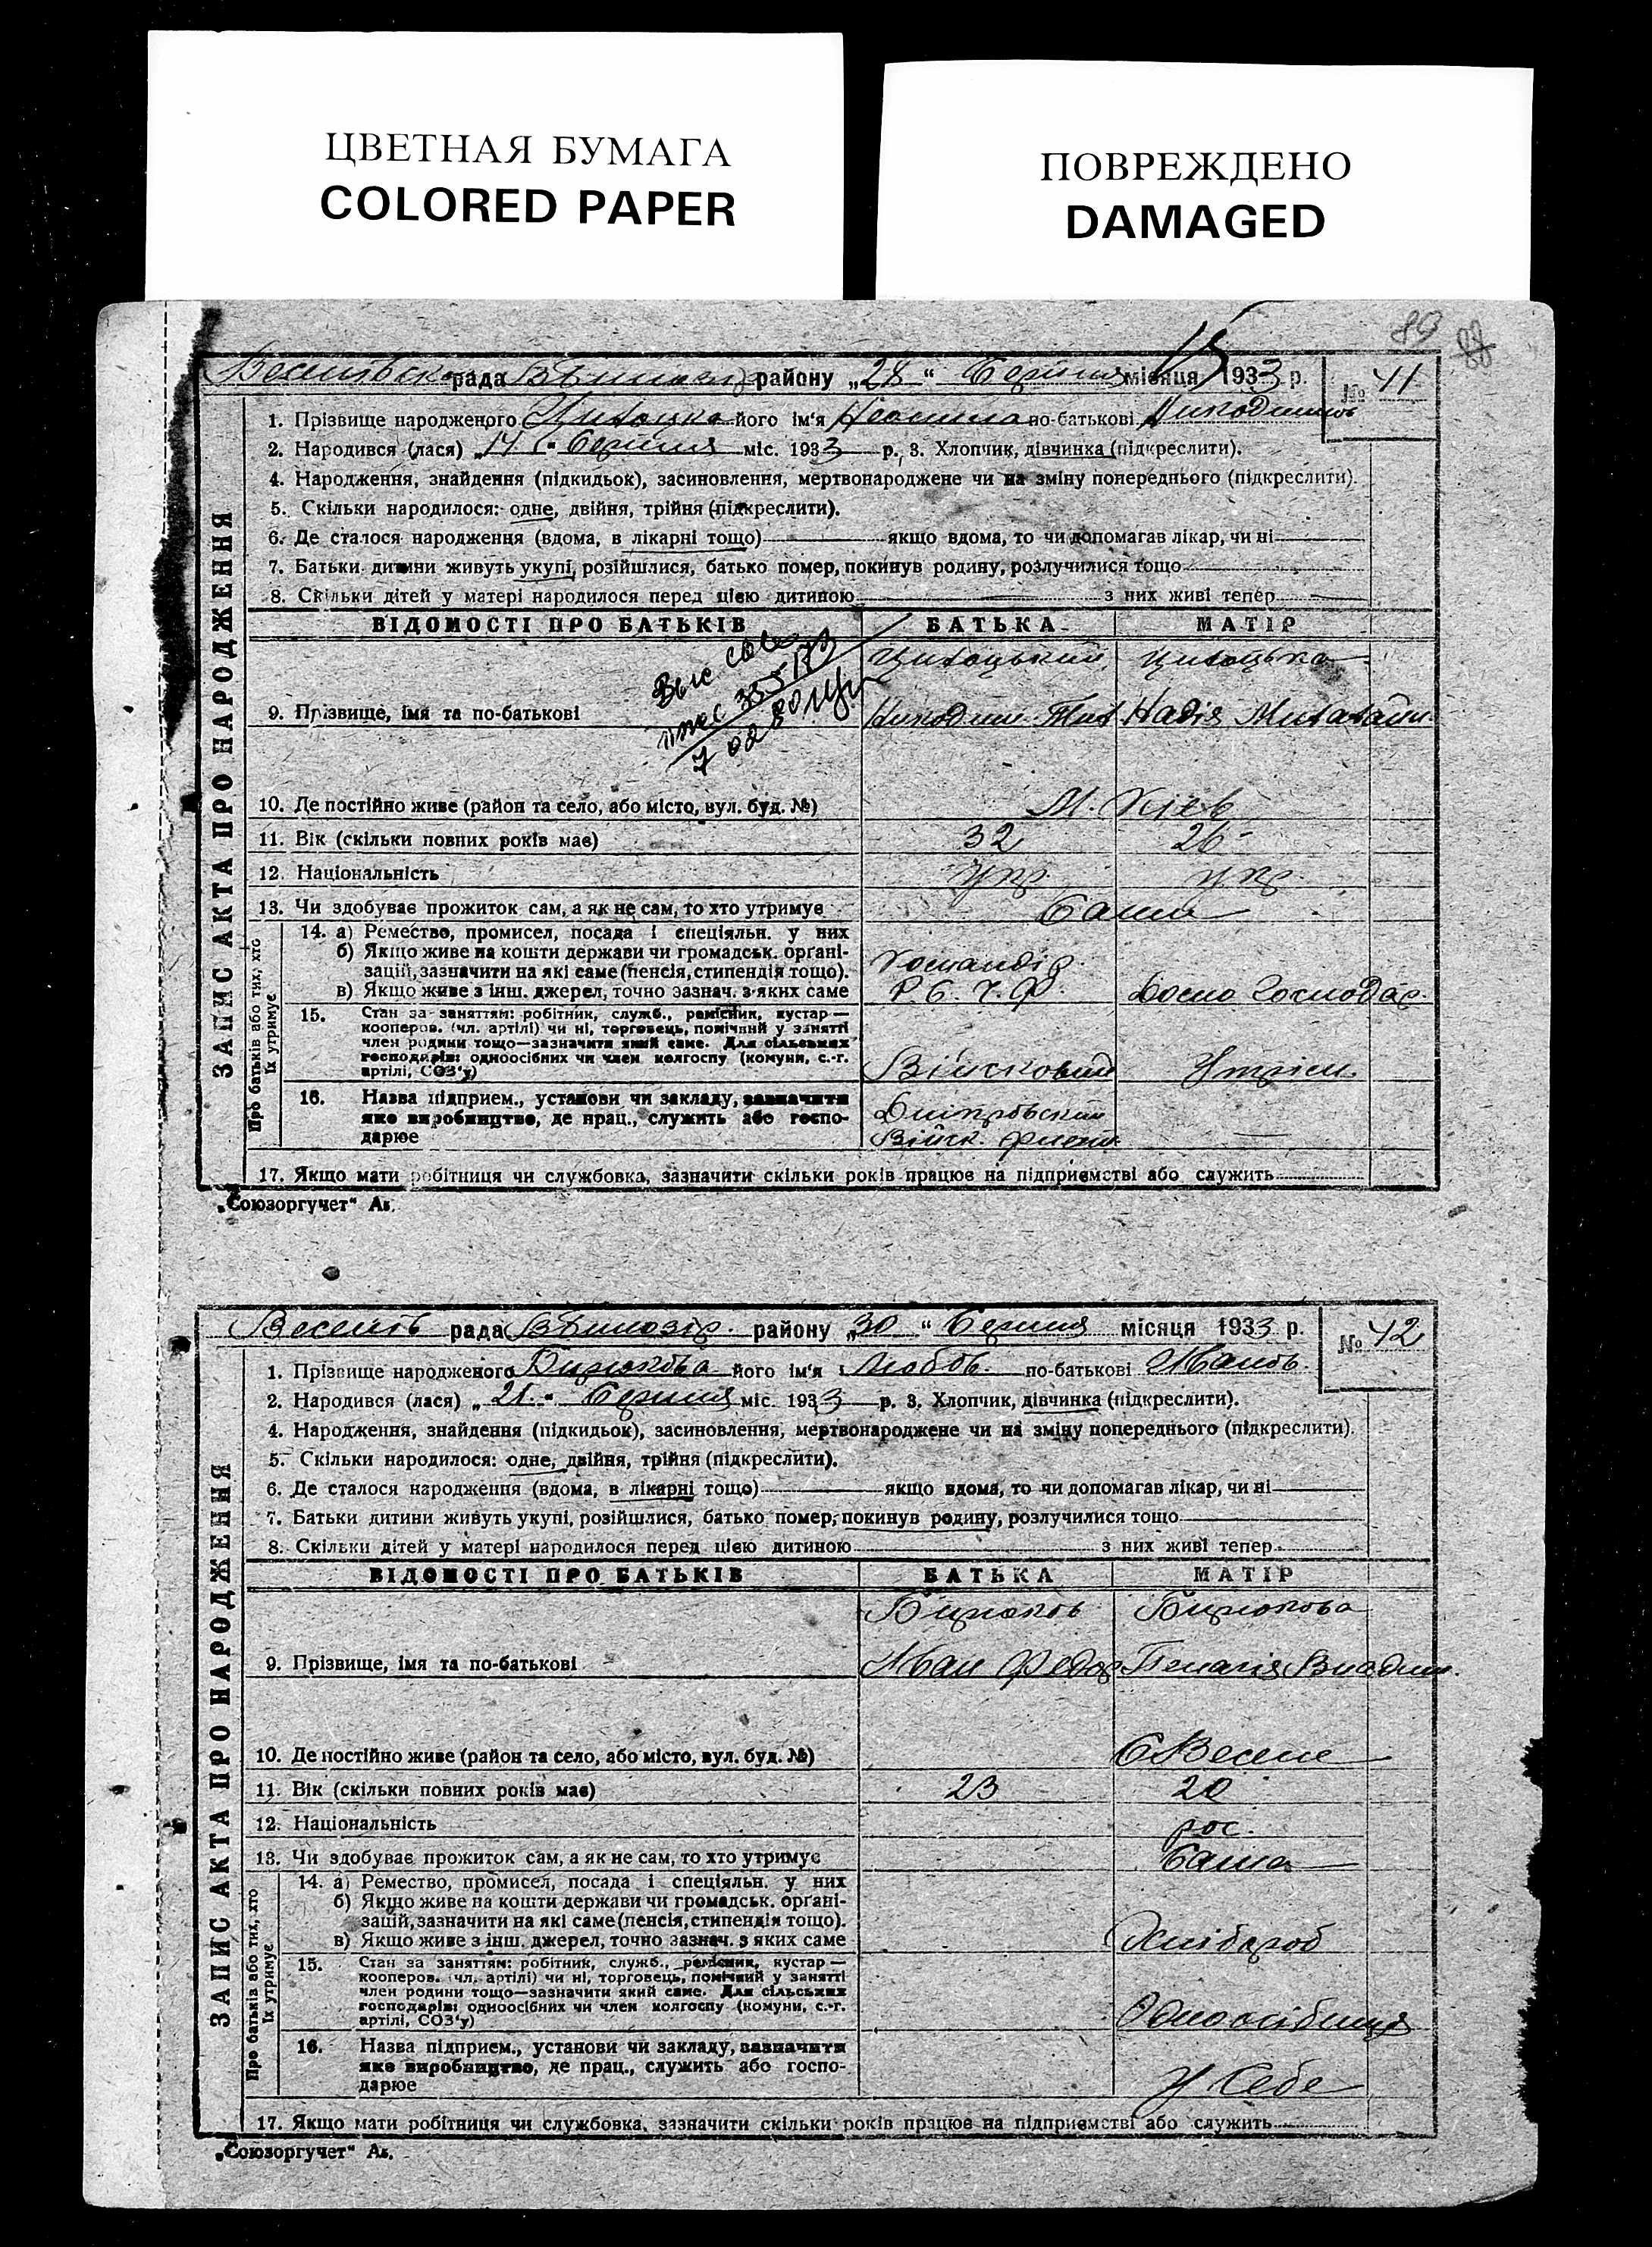 ЦВЕТНАЯ БУМАГА
COLORED PAPER
ПОВРЕЖДЕНО
DAMAGED
89 88
15
рада району „28“ Серпня місяця 1933 р. № 41
1. Прізвище народженого його ім'я по-батькові
2. Народився (лася) „14“ Серпня міс. 1933 р. 3. Хлопчик, дівчинка (підкреслити).
4. Народження, знайдення (підкидьок), засиновлення, мертвонароджене чи на зміну попереднього (підкреслити).
5. Скільки народилося: одне, двійня, трійня (підкреслити).
6. Де сталося народження (вдома, в лікарні тощо) якщо вдома, то чи допомагав лікар, чи ні
7. Батьки дитини живуть укупі, розійшлися, батько помер, покинув родину, розлучилися тощо
8. Скільки дітей у матері народилося перед цією дитиною з них живі тепер
ЗАПИС АКТА ПРО НАРОДЖЕННЯ
ВІДОМОСТІ ПРО БАТЬКІВ БАТЬКА МАТІР
9. Прізвище, імя та по-батькові Никодим Надія
10. Де постійно живе (район та село, або місто, вул. буд. №) М. Київ
11. Вік (скільки повних років має) 32 26
12. Національність укр. укр.
13. Чи здобуває прожиток сам, а як не сам, то хто утримує Сами
Про батьків або тих, хто їх утримує
14. а) Ремество, промисел, посада і спеціяльн. у них
б) Якщо живе на кошти держави чи громадськ. органі-
зацій, зазначити на які саме (пенсія, стипендія тощо). Командір
в) Якщо живе з інш. джерел, точно зазнач. з яких саме Р. С. Ч. Ф. Домо Господар.
15. Стан за заняттям: робітник, служб., ремісник, кустар—
кооперов. (чл. артілі) чи ні, торговець, помічний у занятті
член родини тощо—зазначити який саме. Для сільських
господарів: одноосібних чи член колгоспу (комуни, с.-г.
артілі, СОЗ'у) Військовий Утрим.
16. Назва підприєм., установи чи закладу, зазначити
яке виробництво, де прац., служить або госпо-
дарює
17. Якщо мати робітниця чи службовка, зазначити скільки років працює на підприємстві або служить
„Союзоргучет“ Ак.
Веселів рада Вбилозір. району „30“ Серпня місяця 1933 р. № 42
1. Прізвище народженого Бирюкова його ім'я Любов. по-батькові Иванов.
2. Народився (лася) „21“ Серпня міс. 1933 р. 3. Хлопчик, дівчинка (підкреслити).
4. Народження, знайдення (підкидьок), засиновлення, мертвонароджене чи на зміну попереднього (підкреслити).
5. Скільки народилося: одне, двійня, трійня (підкреслити).
6. Де сталося народження (вдома, в лікарні тощо) якщо вдома, то чи допомагав лікар, чи ні
7. Батьки дитини живуть укупі, розійшлися, батько помер, покинув родину, розлучилися тощо
8. Скільки дітей у матері народилося перед цією дитиною з них живі тепер
ЗАПИС АКТА ПРО НАРОДЖЕННЯ
ВІДОМОСТІ ПРО БАТЬКІВ БАТЬКА МАТІР
Бирюков Бирюкова
9. Прізвище, імя та по-батькові Иван Федор Пелагія Владим.
10. Де постійно живе (район та село, або місто, вул. буд. №) С Веселе
11. Вік (скільки повних років має) 23 20
12. Національність рос.
13. Чи здобуває прожиток сам, а як не сам, то хто утримує Сама
Про батьків або тих, хто їх утримує
14. а) Ремество, промисел, посада і спеціяльн. у них
б) Якщо живе на кошти держави чи громадськ. органі-
зацій, зазначити на які саме (пенсія, стипендія тощо).
в) Якщо живе з інш. джерел, точно зазнач. з яких саме Хлібороб
15. Стан за заняттям: робітник, служб., ремісник, кустар—
кооперов. (чл. артілі) чи ні, торговець, помічний у занятті
член родини тощо—зазначити який саме. Для сільських
господарів: одноосібних чи член колгоспу (комуни, с.-г.
артілі, СОЗ'у) Одноосібниця
16. Назва підприєм., установи чи закладу, зазначити
яке виробництво, де прац., служить або госпо-
дарює У Себе
17. Якщо мати робітниця чи службовка, зазначити скільки років працює на підприємстві або служить
„Союзоргучет“ Ак.